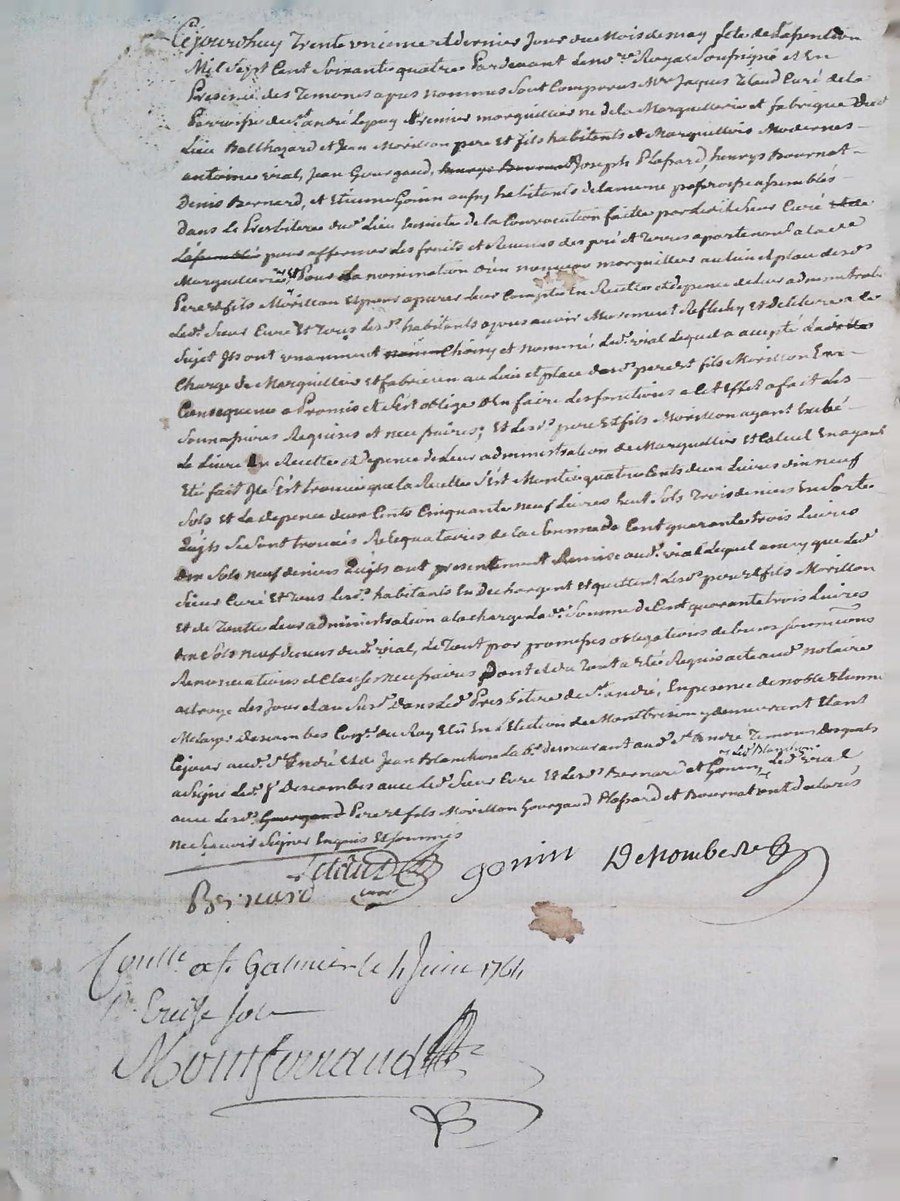 Cejourdhuy Trente unieme et dernier Jour du Mois de may fete de Lassention
Mil Sept Cent Soixante quatre Pardevant Le no.re Royal Soussigné et En
Presence des Temoins apres nommes Sont Comparus M.re Jaques Telaud Curé de la
Parroisse de S.t andré Lepuy premier morguillier né de la Morguillerie et fabrique dud
Lieu Balthazard et Jean Morillon pere et fils habitants et Marguilliers Modernes
antoine vial, Jean Gourgaud, Joseph Plassard, henrys Bournat
Denis Bernard, et Etienne Gonin aussy habitants de la meme parroisse assembles
dans Le Presbitere dud. Lieu Ensuite de la Convocation faitte par led. Sieur Curé et de
Lassemblée pour affermer Les fruits et Revenus des pré et Terres apartenant a lad.
Morguillerie et Pour La nomination d'un nouveau morguillier au lieu et place desd.
Pere et fils Morillon Et pour apurer Leur Compte En Recette et depence de Leur administration
Led. Sieur Curé Et Tous Lesd. habitants apres avoir Murement Reflechy et deliberé a ce
Sujet Ils ont unanimement Choisy et nommé Led. vial Lequel a accepté
Charge de Marguillier et fabricien au Lieu et place desd. pere et fils Morillon En
Consequence a Promis et S'est obligé d'En faire Les fonctions a cet Effet a fait Les
Soumissions Requises et necessaires; Et Lesd. pere et fils Morillon ayant Exibé
Le Livre de Recette et Depence de Leur administration de Marguillier et Calcul En ayant
Eté fait Il s'est trouvé que la Recette S'est Montée quatre Cents deux Livres dix neuf
Sols et La depence deux Cents Cinquante neuf Livres huit Sols Trois deniers En Sorte
Quils Se Sont trouvés Reliquataires de la Somme de Cent quarante trois Livres
dix Sols neuf deniers Quils ont presentement Remise aud. vial Lequel ainsy que Led.
Sieur Curé Et Tous Lesd. habitants En dechargent et quittent Lesd. pere et fils Morillon
Et de Toutte Leur administration a la charge Lad. Somme de Cent quarante trois Livres
dix Sols neuf deniers dud. vial, Le Tout par promesses obligations de biens Soumissions
Renonciations et Clauses necessaires Dont et du Tout a Eté Requis acte aud. notaire
octroyé Les Jour et an Susd. Dans Led. Presbitere de S.t andré, En presence de noble Etienne
Descombes Con.er du Roy Elû En L'Election de Montbrison y demeurant Etant
Cejour aud. S.t André Et de Jean Blanchon demeurant aud. S.t André Temoins Desquels
Led. Blanchon
a Signé Led. S.r Descombes avec Led. Sieur Curé Et Lesd. Bernard et Gonin, Led. vial
avec Lesd. Gourgaud Pere et fils Morillon Gourgaud Plassard et Bournat ont declarés
ne Sçavoir Signer Enquis Et Sommes
Telaud
curé
gonin
Bernard
Conlle. a St. Galmier le 4 Juin 1764
R. treize sols
Montferrand